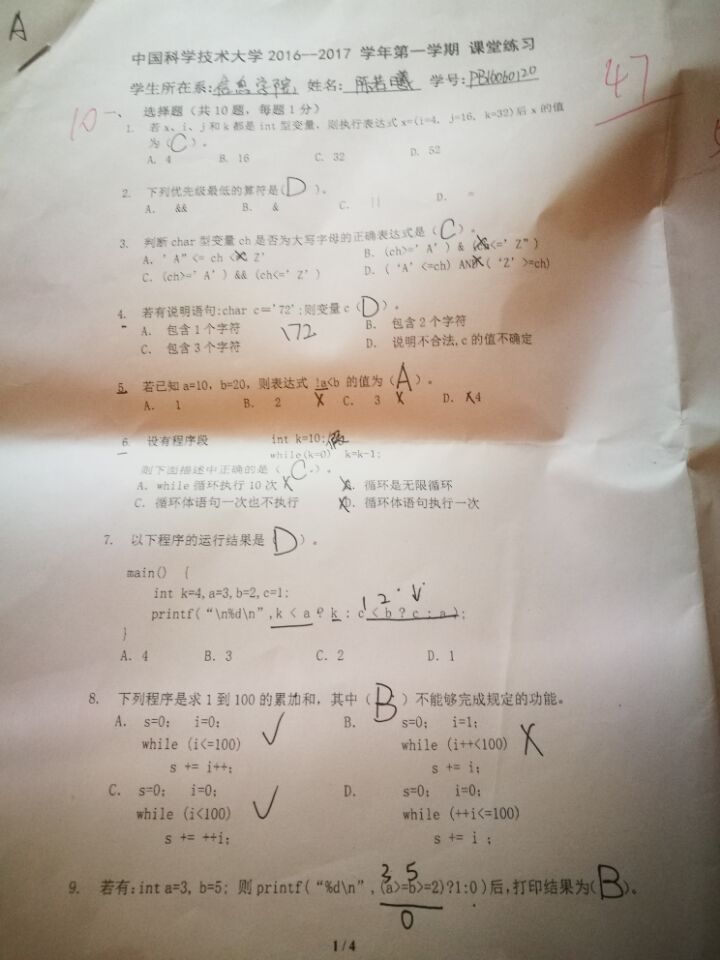 A
中国科学技术大学 2016--2017 学年第一学期 课堂练习
学生所在系:信息学院 姓名: 陈若曦 学号:PB16060120
47
10
一、 选择题（共 10 题，每题 1 分）
1. 若 x、i、j 和 k 都是 int 型变量，则执行表达式 x=(i=4, j=16, k=32)后 x 的值
为（C）。
A. 4 B. 16 C. 32 D. 52
2. 下列优先级最低的算符是(D )。
A. && B. & C. || D. =
3. 判断 char 型变量 ch 是否为大写字母的正确表达式是（C）。
A. ' A"<= ch <= Z' B. (ch>=' A' ) & (ch<=' Z")
C. (ch>=' A' ) && (ch<=' Z' ) D. ( 'A' <=ch) AND ( 'Z' >=ch)
4. 若有说明语句:char c='72';则变量 c（D）。
A. 包含 1 个字符 \72 B. 包含 2 个字符
C. 包含 3 个字符 D. 说明不合法,c 的值不确定
5. 若已知 a=10，b=20，则表达式 !a<b 的值为（A）。
A. 1 B. 2 X C. 3 X D. X 4
6. 设有程序段 int k=10; 假
while(k=0) k=k-1;
则下面描述中正确的是（ C ）。
A. while 循环执行 10 次 X B. 循环是无限循环
C. 循环体语句一次也不执行 D. 循环体语句执行一次
7. 以下程序的运行结果是（D）。
main() {
int k=4,a=3,b=2,c=1;
1 2
printf("\n%d\n",k < a ? k : c < b ? c : a );
}
A. 4 B. 3 C. 2 D. 1
8. 下列程序是求 1 到 100 的累加和，其中（B）不能够完成规定的功能。
A. s=0; i=0; B. s=0; i=1;
while (i<=100) √ while (i++<100) X
s += i++; s += i;
C. s=0; i=0; D. s=0; i=0;
while (i<100) √ while (++i<=100)
s += ++i; s += i ;
3 5
9. 若有:int a=3, b=5; 则 printf("%d\n", (a>=b>=2)?1:0)后,打印结果为(B)。
0
1 / 4